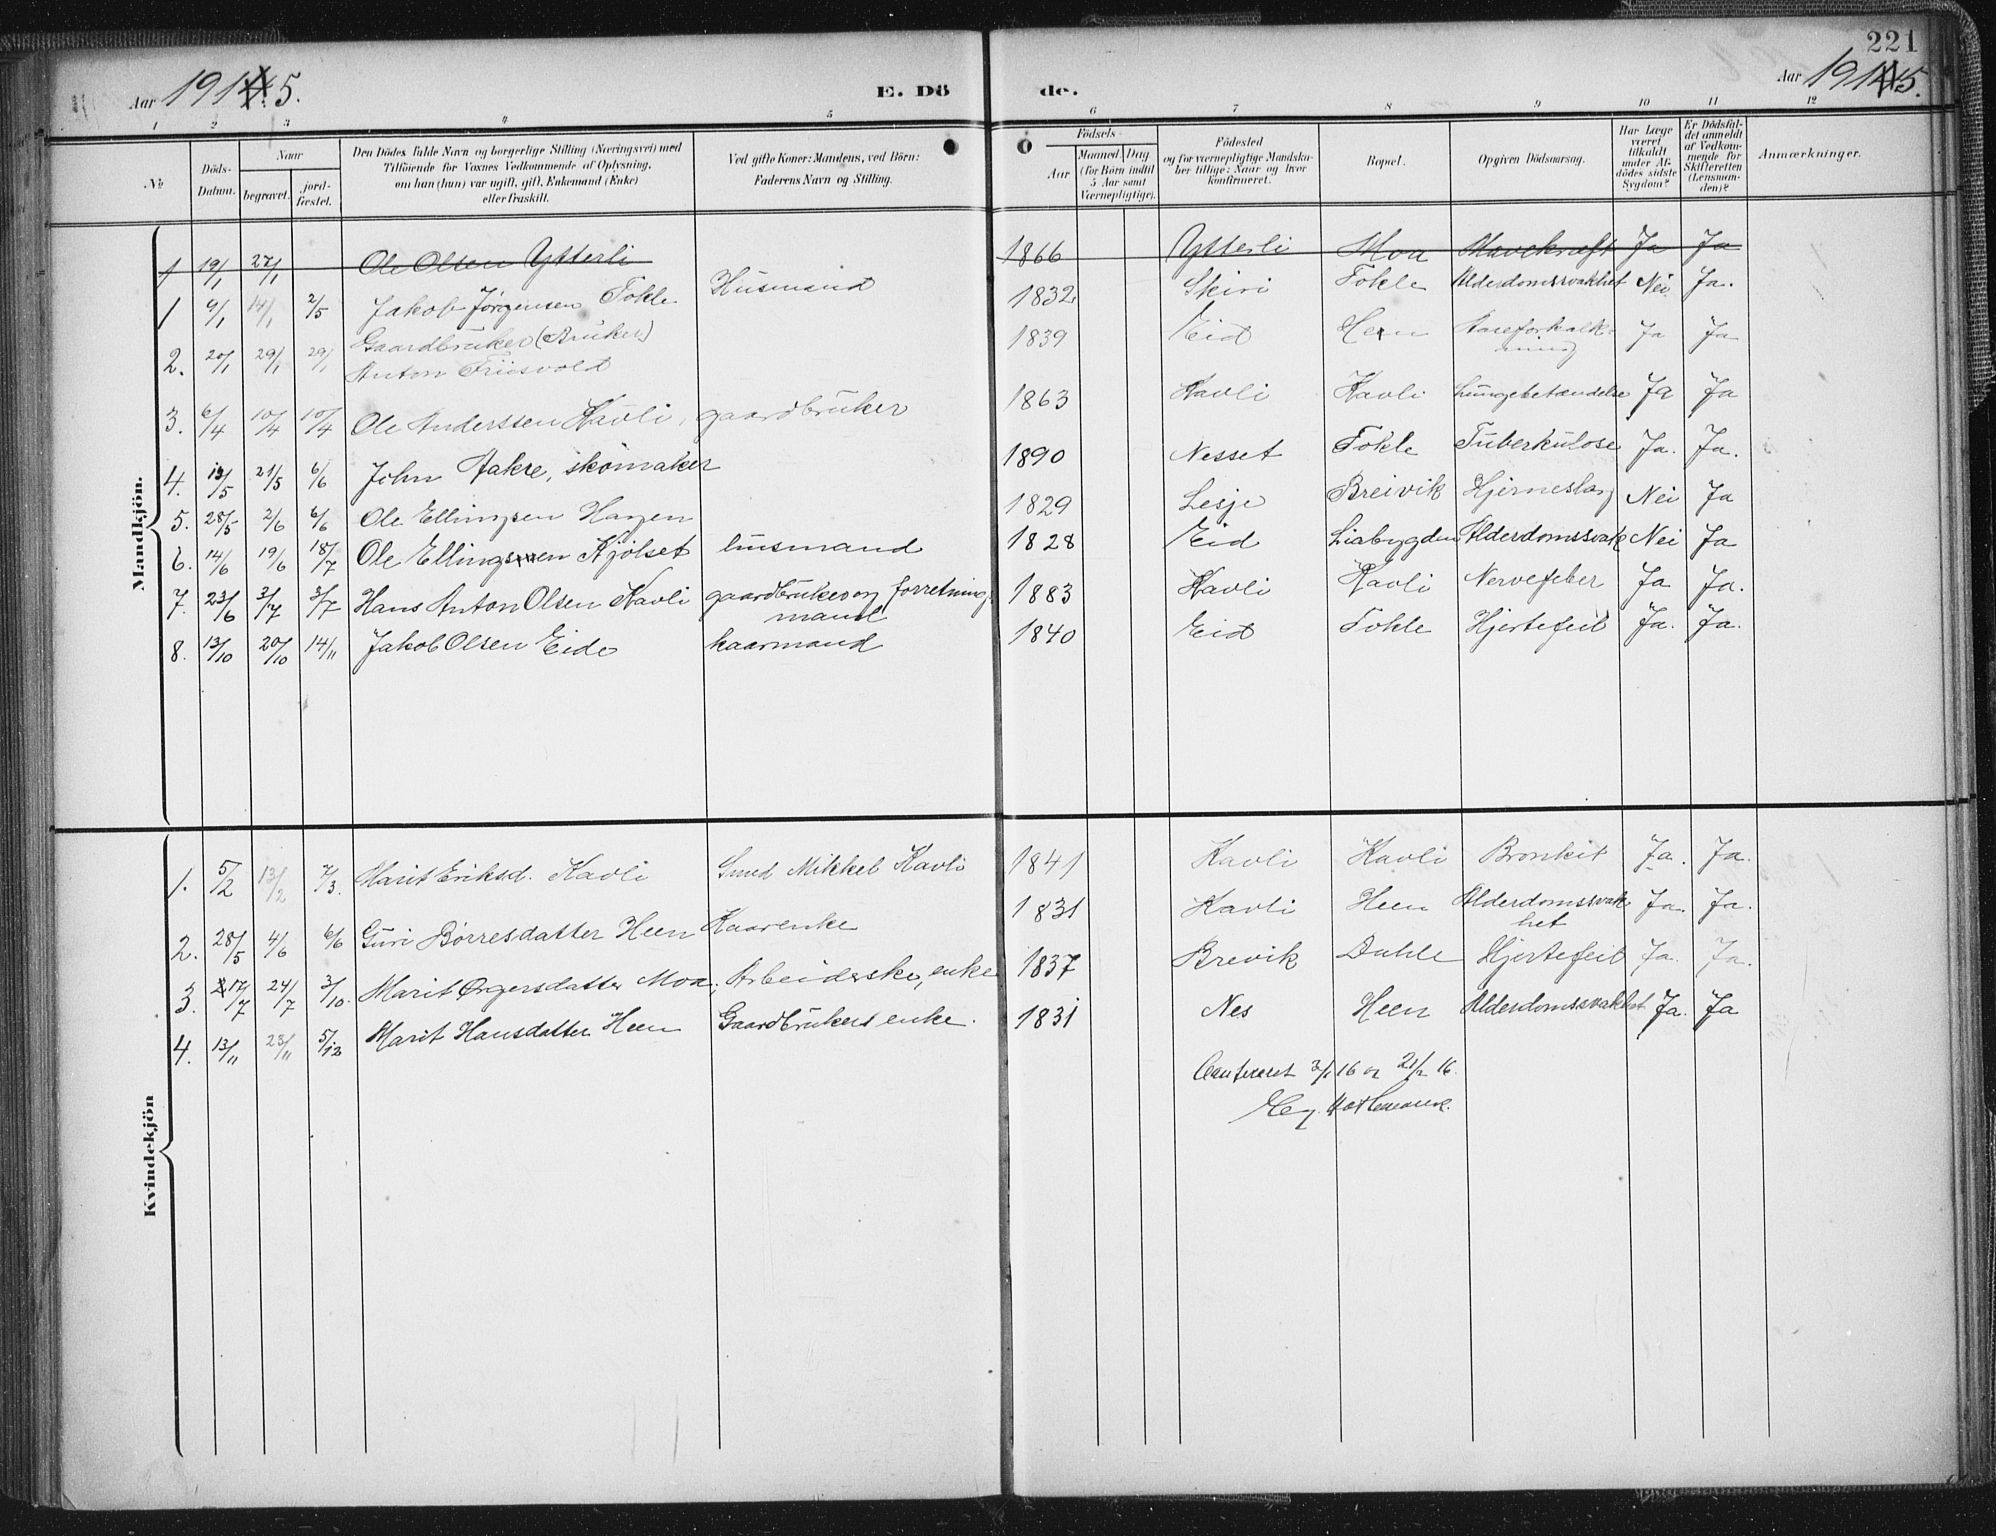 221
Aar 1914.5. E. Dö de. Aar 1915.
1 2 3 4 5 6 7 8 9 10 11 12
No. Döds-Datum. Naar begravet. jord-fæstet. Den Dödes fulde Navn og borgerlige Stilling (Næringsvei) med Tilföiende for Voxnes Vedkommende af Oplysning, om han (hun) var ugift, gift, Enkemand (Enke) eller fraskilt. Ved gifte Koner: Mandens, ved Börn: Faderens Navn og Stilling. Födsels- Aar Maaned Dag (for Börn indtil 5 Aar samt Værnepligtige). Födested og for værnepligtige Mandskaber tillige: Naar og hvor konfirmeret. Bopæl. Opgiven Dödsaarsag. Har Læge været tilkaldt under Afdödes sidste Sygdom? Er Dödsfaldet anmeldt af Vedkommende for Skifteretten (Lensmanden)? Anmærkninger.
Mandkjön.
1 19/1 27/1 Ole Olsen Ytterli 1866 Ytterli Moa Mavekræft Ja Ja
1 9/1 14/1 2/5 Jakob Jørgensen Fokle Husmand 1832 Skiri Fokle Alderdomssvakhet Nei Ja.
2. 20/1 29/1 29/1 Gaardbruker (Bruker) Anton Friisvold 1839 Eid Hen Aareforkalkning Ja Ja
3. 6/4 10/4 10/4 Ole Anderssen Kavli, gaardbruker 1863 Kavli Kavli Lungebetændelse Ja Ja
4. 13/5 21/5 6/6 John Aakre, skomaker 1890 Nesset Fokle Tuberkulose Ja. Ja.
5. 28/5 2/6 6/6 Ole Ellingsen Hagen 1829 Lesje Breivik Hjerneslag Nei Ja
6. 14/6 19/6 18/7 Ole Ellingsen Kjölset husmand 1828 Eid Liabygden Alderdomssvak Nei Ja
7. 23/6 3/7 3/7 Hans Anton Olsen Kavli gaardbruker og forretnings mand 1883 Kavli Kavli Nervefeber Ja Ja.
8. 13/10 20/10 14/11 Jakob Olsen Eide kaarmand 1840 Eid Fokle Hjertefeil Ja. Ja.
Kvindekjön
1. 5/2 13/2 7/3. Marit Eriksd. Kavli Smed Mikkel Kavli 1841 Kavli Kavli Bronkit Ja. Ja.
2. 28/5 4/6 6/6 Guri Børresdatter Heen Kaarenke 1831 Kavli Heen Alderdomssvakhet Ja. Ja.
3. 17/7 24/7 3/10. Marit Ørgersdatter Moa, Arbeiderske, enke 1837 Brevik Dahle Hjertefeil Ja. Ja.
4. 13/11 23/11 5/12 Marit Hansdatter Heen Gaardbrukers enke. 1831 Nes Heen Alderdomssvakhet Ja. Ja
16 16.